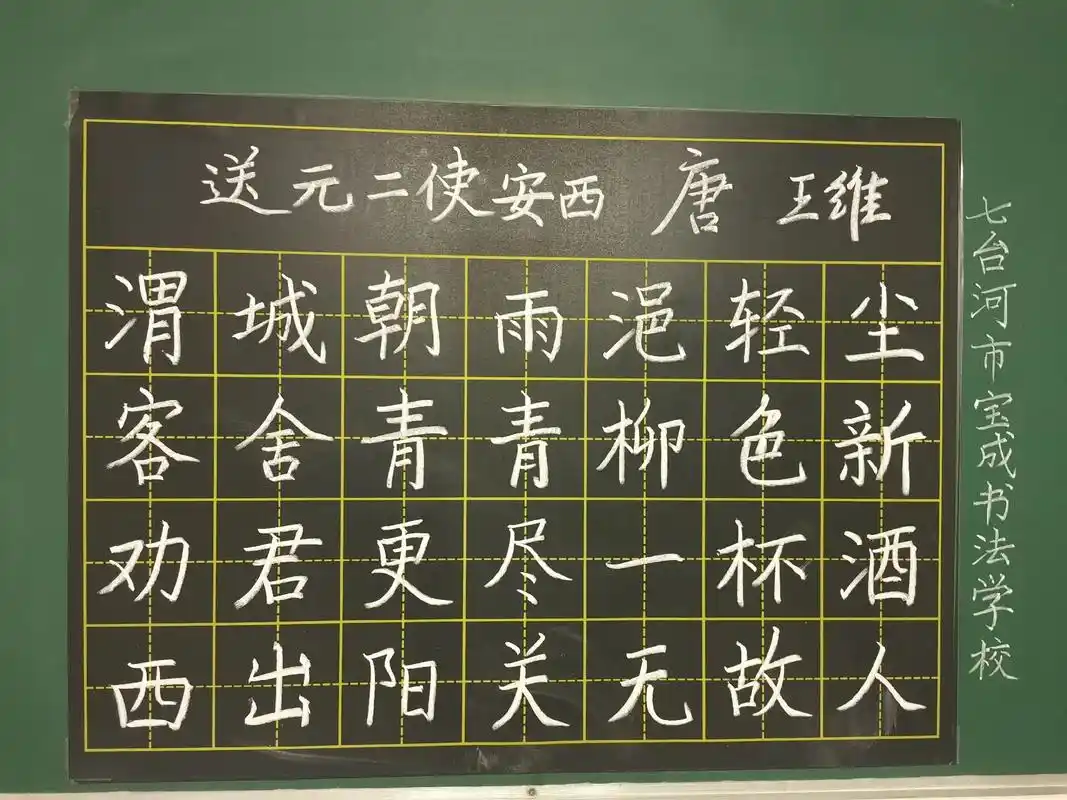 送元二使安西 唐 王维
渭城朝雨浥轻尘
客舍青青柳色新
劝君更尽一杯酒
西出阳关无故人
七台河市宝成书法学校